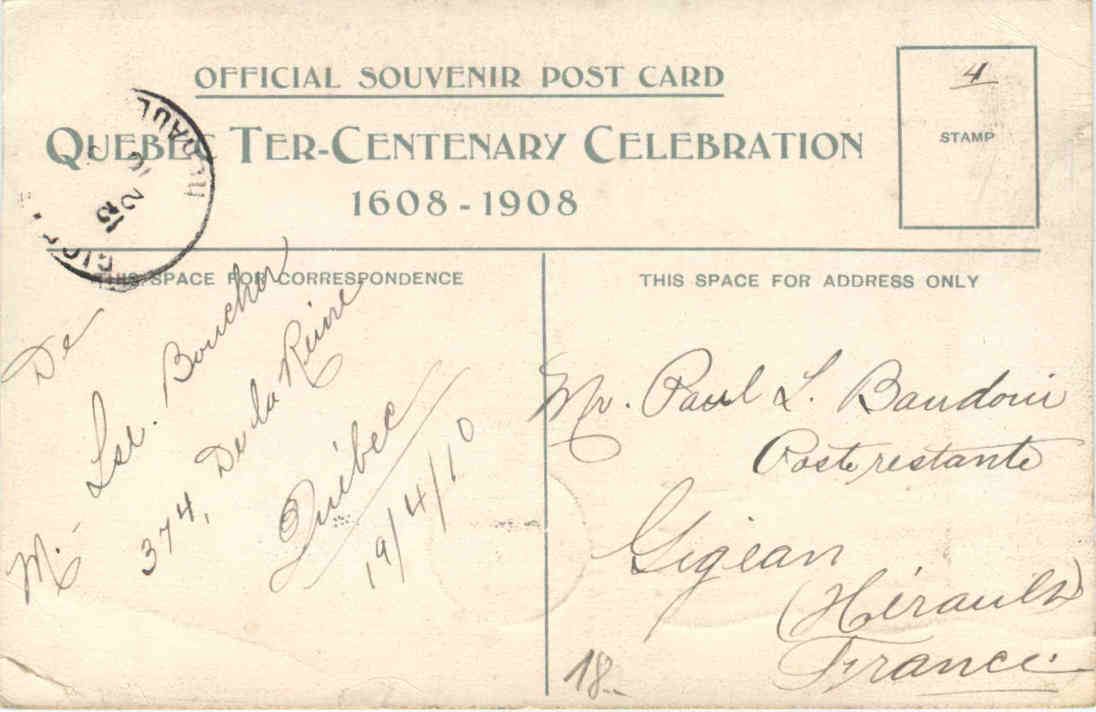 OFFICIAL SOUVENIR POST CARD
QUEBEC TER-CENTENARY CELEBRATION
1608-1908
4
STAMP
THIS SPACE FOR CORRESPONDENCE
THIS SPACE FOR ADDRESS ONLY
De
M. Boucher
374, De la Reine
Québec
19/4/10
Mr. Paul L. Baudoin
Poste restante
Gigean
(Hérault)
France.
18